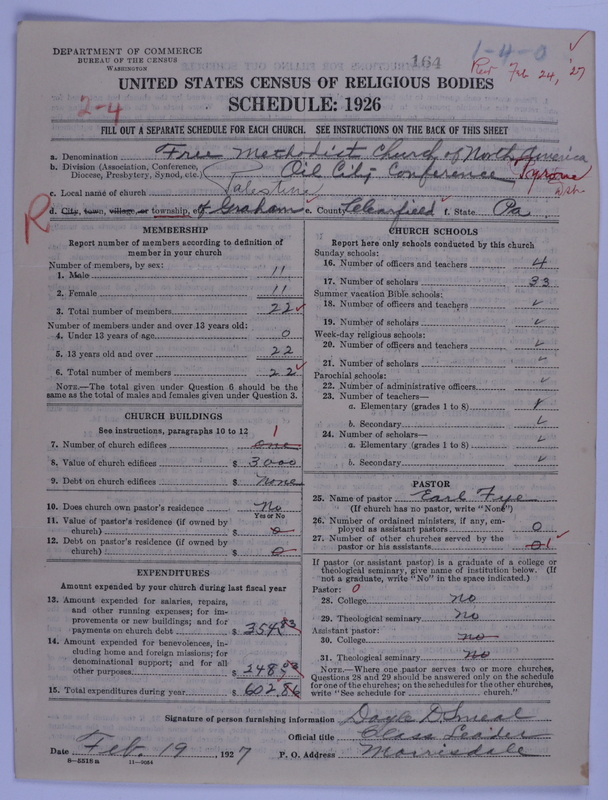 DEPARTMENT OF COMMERCE
BUREAU OF THE CENSUS
WASHINGTON
164
1-4-0
Rev Feb 24, '27
UNITED STATES CENSUS OF RELIGIOUS BODIES
2-4
SCHEDULE: 1926
FILL OUT A SEPARATE SCHEDULE FOR EACH CHURCH. SEE INSTRUCTIONS ON THE BACK OF THIS SHEET
a. Denomination Free Methodist Church of North America
b. Division (Association, Conference, Diocese, Presbytery, Synod, etc.) Oil City Conference Tyrone Dist.
c. Local name of church Palestine
R
d. City, town, village, or township, of Graham e. County Clearfield f. State Pa
MEMBERSHIP
Report number of members according to definition of
member in your church
Number of members, by sex:
1. Male 11
2. Female 11
3. Total number of members 22
Number of members under and over 13 years old:
4. Under 13 years of age 0
5. 13 years old and over 22
6. Total number of members 22
NOTE.—The total given under Question 6 should be the
same as the total of males and females given under Question 3.
CHURCH BUILDINGS
See instructions, paragraphs 10 to 12
7. Number of church edifices one 1
8. Value of church edifices $ 3000
9. Debt on church edifices $ None
10. Does church own pastor's residence No
Yes or No
11. Value of pastor's residence (if owned by
church) $ 0
12. Debt on pastor's residence (if owned by
church) $ 0
EXPENDITURES
Amount expended by your church during last fiscal year
13. Amount expended for salaries, repairs,
and other running expenses; for im-
provements or new buildings; and for
payments on church debt $ 354.83
14. Amount expended for benevolences, in-
cluding home and foreign missions; for
denominational support; and for all
other purposes $ 248.03
15. Total expenditures during year $ 602.86
CHURCH SCHOOLS
Report here only schools conducted by this church
Sunday schools:
16. Number of officers and teachers 4
17. Number of scholars 33
Summer vacation Bible schools:
18. Number of officers and teachers
19. Number of scholars
Week-day religious schools:
20. Number of officers and teachers
21. Number of scholars
Parochial schools:
22. Number of administrative officers
23. Number of teachers—
a. Elementary (grades 1 to 8)
b. Secondary
24. Number of scholars—
a. Elementary (grades 1 to 8)
b. Secondary
PASTOR
25. Name of pastor Earl Fye
(If church has no pastor, write "None")
26. Number of ordained ministers, if any, em-
ployed as assistant pastors 0
27. Number of other churches served by the
pastor or his assistants 0 1
If pastor (or assistant pastor) is a graduate of a college or
theological seminary, give name of institution below. (If
not a graduate, write "No" in the space indicated.)
Pastor: 0
28. College No
29. Theological seminary No
Assistant pastor:
30. College no
31. Theological seminary No
NOTE.—Where one pastor serves two or more churches,
Questions 28 and 29 should be answered only on the schedule
for one of the churches; on the schedules for the other churches,
write "See schedule for church."
Signature of person furnishing information Doyle D Smeal
Official title Class Leader
Date Feb. 19 1927 P. O. Address Morrisdale
8-5518 a 11-9034